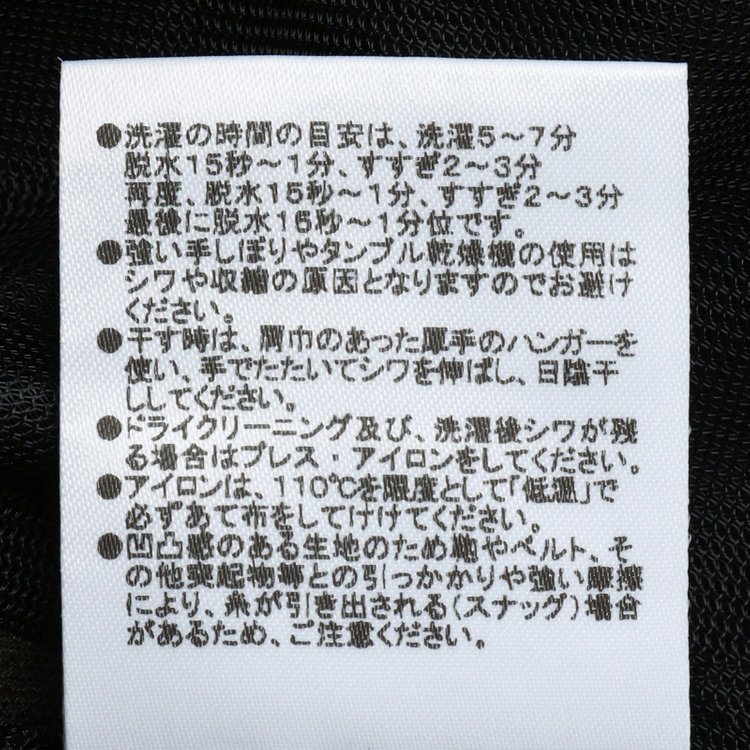 ●洗濯の時間の目安は、洗濯5～7分
脱水15秒～1分、すすぎ2～3分
再度、脱水15秒～1分、すすぎ2～3分
最後に脱水15秒～1分位です。
●強い手しぼりやタンブル乾燥機の使用は
シワや収縮の原因となりますのでお避け
ください。
●干す時は、肩巾のあった厚手のハンガーを
使い、手でたたいてシワを伸ばし、日陰干
ししてください。
●ドライクリーニング及び、洗濯後シワが残
る場合はプレス・アイロンをしてください。
●アイロンは、110℃を限度として「低温」で
必ずあて布をしてけけてください。
●凹凸感のある生地のため鞄やベルト、そ
の他突起物等との引っかかりや強い摩擦
により、糸が引き出される(スナッグ)場合
があるため、ご注意ください。